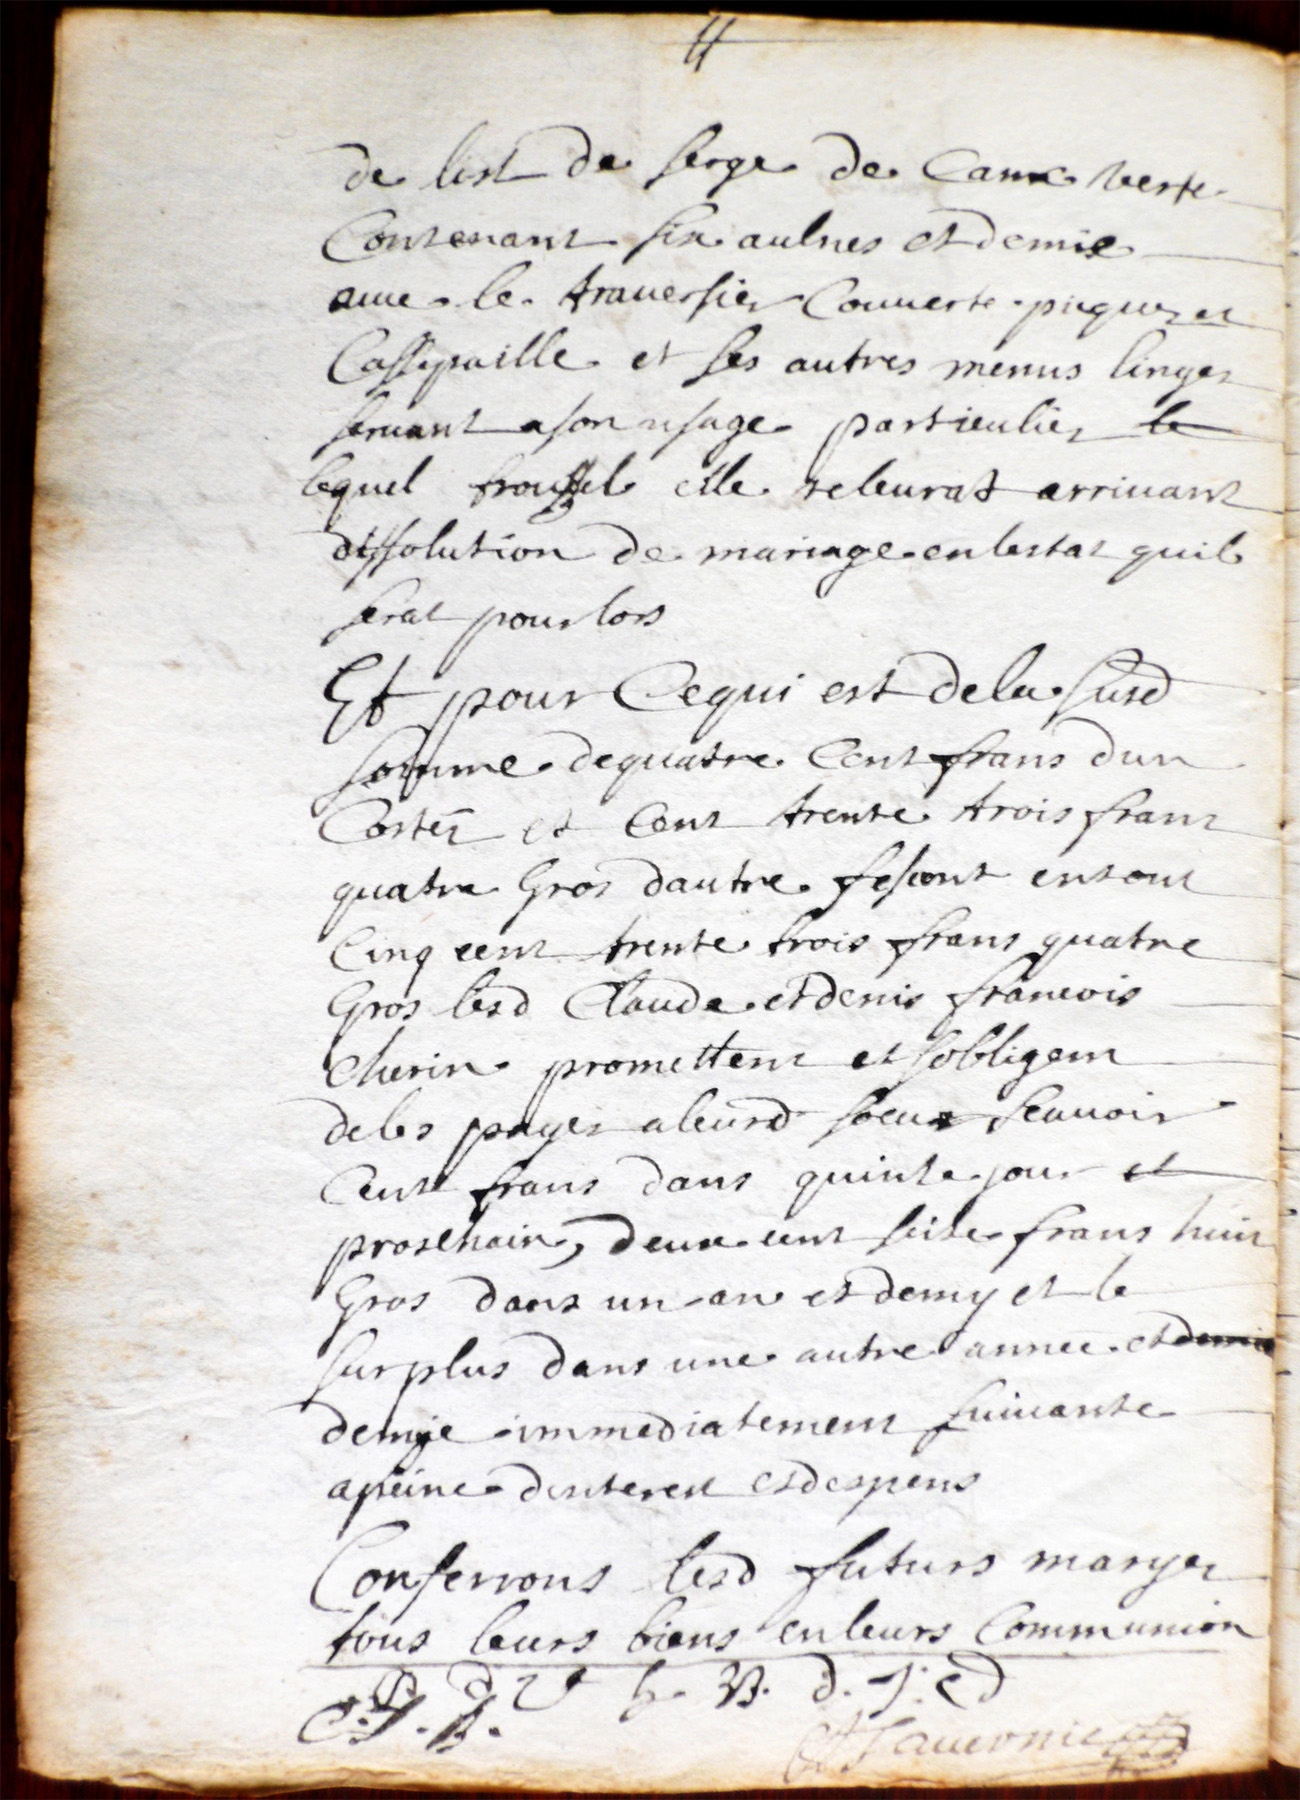 de list de serge de Caux verte
Contenant six aulnes et demie
avec le traversier Couverte piquez et
et ses autres menus linges
servant a son usage particulier le
lequel troussel elle releverat arrivant
dissolution de mariage en lestat quil
serat pour lors
Et pour Cequi est dela susd
somme dequatre Cent frans dun
Costez et Cent trente trois frans
quatre Gros dautre fesant entout
Cinq cent trente trois frans quatre
Gros lesd Claude et denis francois
promettent et sobligent
deles payer a leurd soeur scavoir
Cent frans dans quinze jour et
prochain, deux cent seize frans huit
Gros dans un an et demy et le
surplus dans une autre annee et demie
demye immediatement suivante
apeine dinterest et despens
Conferrons lesd futurs maryez
tous leurs biens en leurs Communion